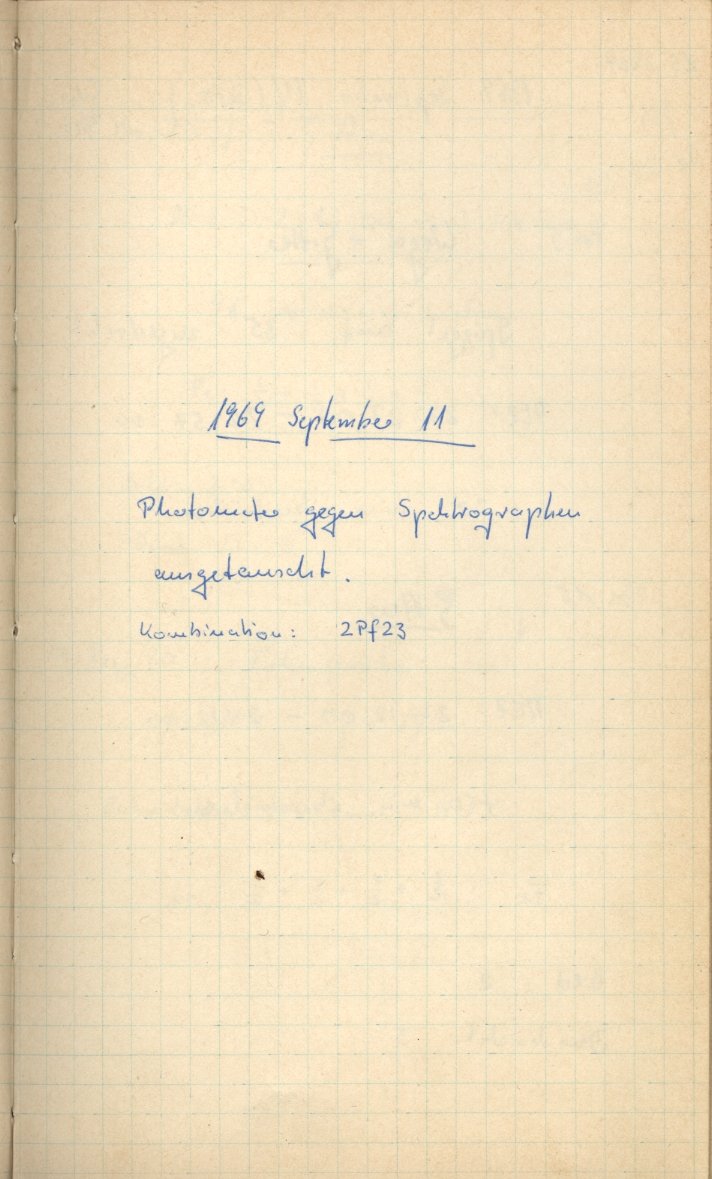 1969 September 11
Photometer gegen Spektrographen
ausgetauscht.
Kombination: 2Pf23